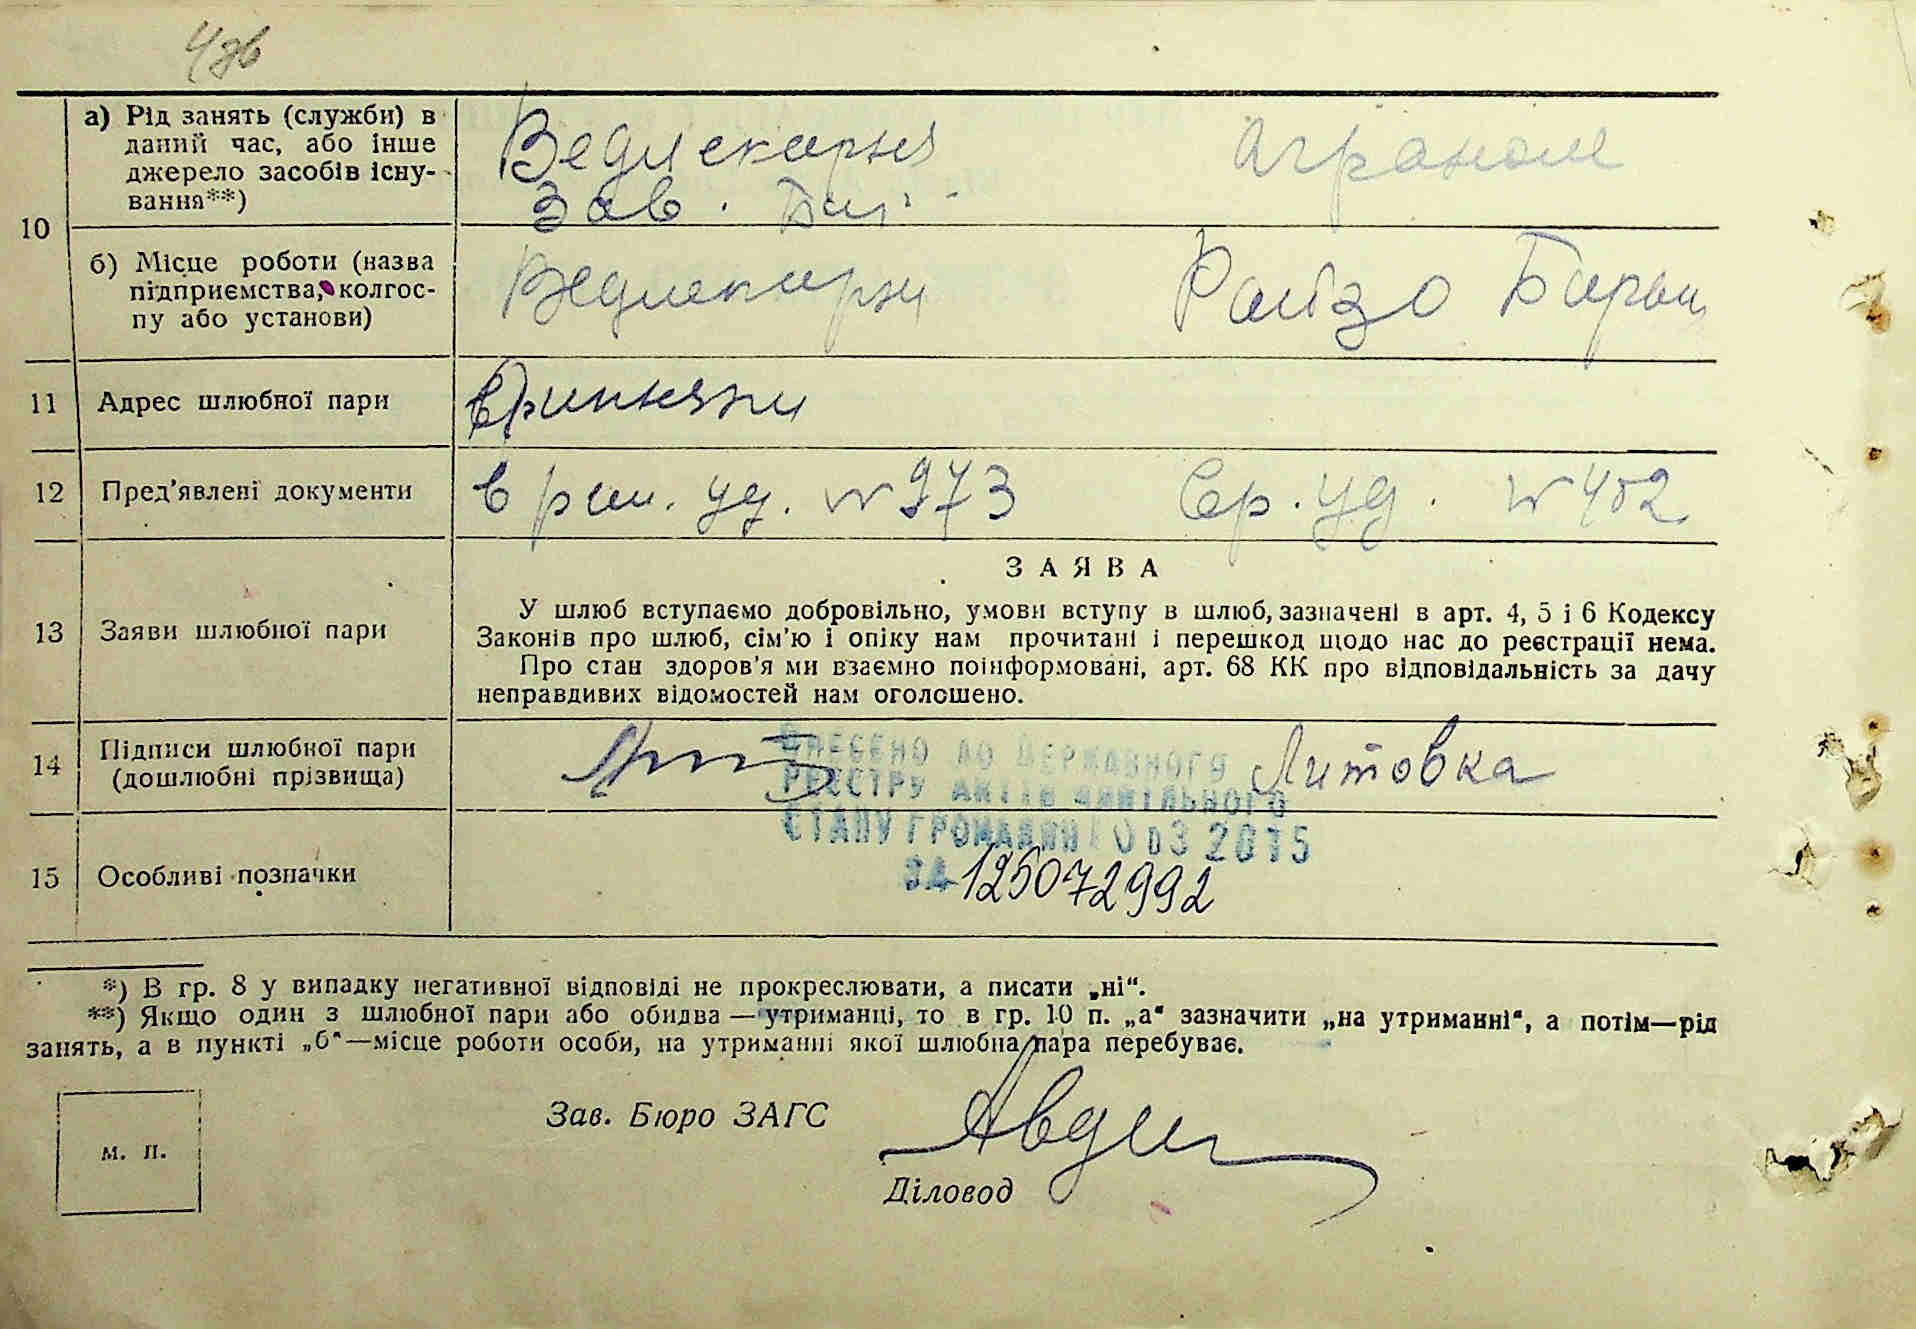 4зв
а) Рід занять (служби) в
даний час, або інше
джерело засобів існу-
вання**)
Зав.
Агроном
10
б) Місце роботи (назва
підприємства, колгос-
пу або установи)
Райзо
11 Адрес шлюбної пари
12 Пред'явлені документи
врем. уд. №973 Вр. уд. №402
13 Заяви шлюбної пари
ЗАЯВА
У шлюб вступаємо добровільно, умови вступу в шлюб, зазначені в арт. 4, 5 і 6 Кодексу
Законів про шлюб, сім'ю і опіку нам прочитані і перешкод щодо нас до реєстрації нема.
Про стан здоров'я ми взаємно поінформовані, арт. 68 КК про відповідальність за дачу
неправдивих відомостей нам оголошено.
14 Підписи шлюбної пари
(дошлюбні прізвища)
Литовка
ВНЕСЕНО ДО ДЕРЖАВНОГО
РЕЄСТРУ АКТІВ ЦИВІЛЬНОГО
СТАНУ ГРОМАДЯН 10 03 2015
ЗА 125072992
15 Особливі позначки
*) В гр. 8 у випадку негативної відповіді не прокреслювати, а писати „ні“.
**) Якщо один з шлюбної пари або обидва — утриманці, то в гр. 10 п. „а“ зазначити „на утриманні“, а потім—рід
занять, а в пункті „б“—місце роботи особи, на утриманні якої шлюбна пара перебуває.
м. п.
Зав. Бюро ЗАГС
Діловод